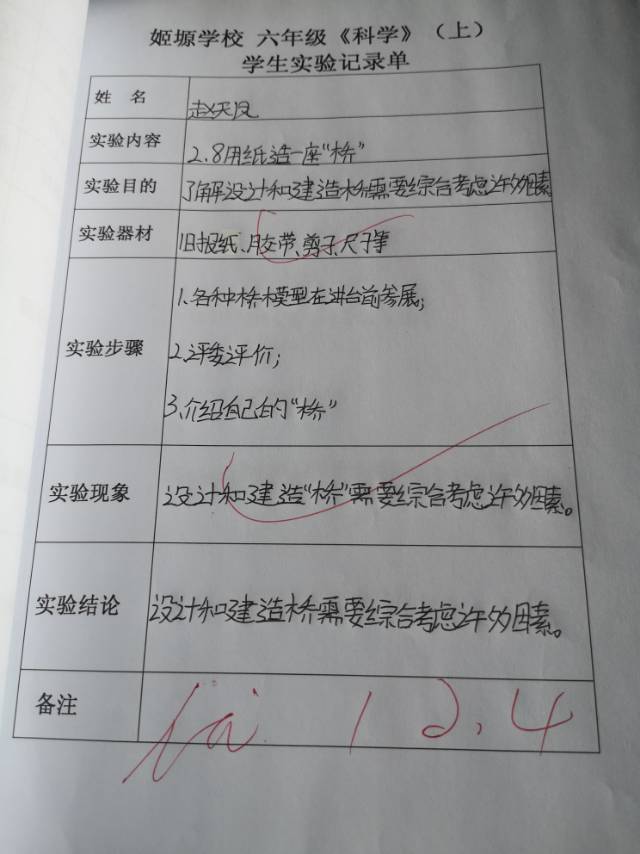 姬塬学校 六年级《科学》（上）
学生实验记录单
姓 名 赵天凤
实验内容 2.8用纸造一座“桥”
实验目的 了解设计和建造桥需要综合考虑许多因素
实验器材 旧报纸、胶带、剪子、尺子笔
1、各种桥模型在讲台前参展;
实验步骤 2、评委评价;
3、介绍自己的“桥”
实验现象 设计和建造“桥”需要综合考虑许多因素。
实验结论 设计和建造桥需要综合考虑许多因素。
备注 12.4